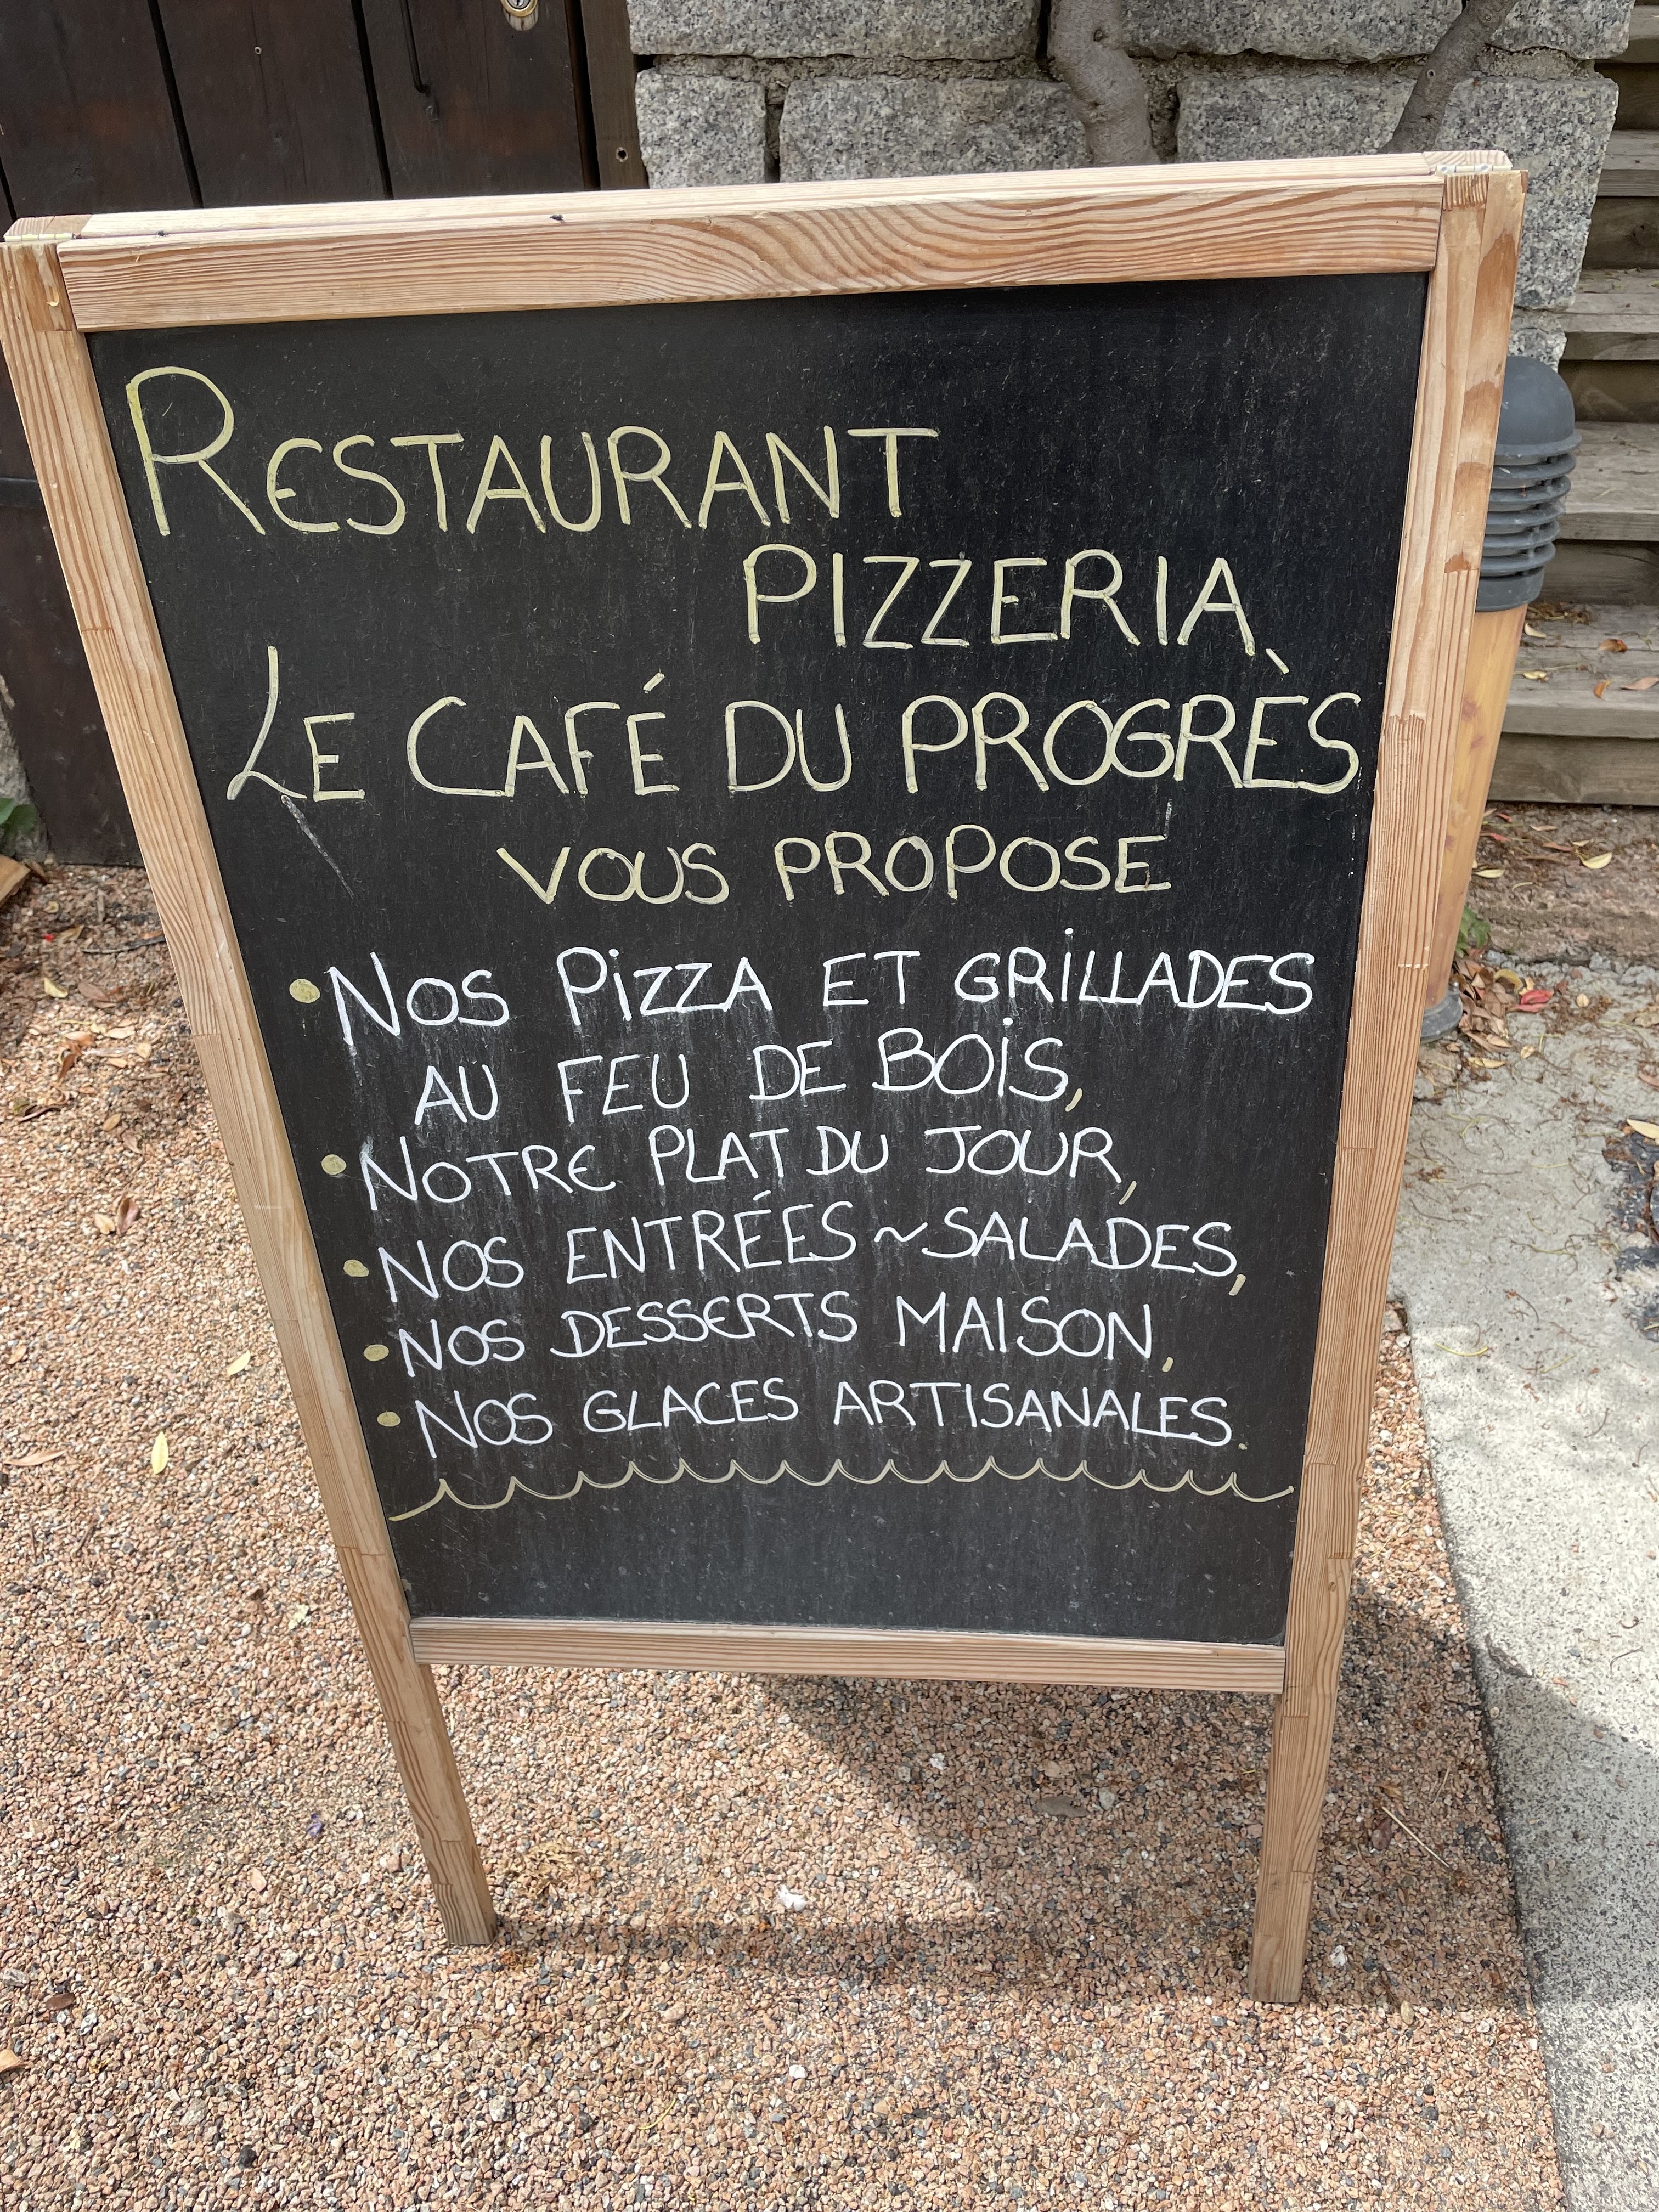 RESTAURANT
PIZZERIA
LE CAFÉ DU PROGRÈS
VOUS PROPOSE
• NOS PIZZA ET GRILLADES
AU FEU DE BOIS,
• NOTRE PLAT DU JOUR,
• NOS ENTRÉES ~ SALADES,
• NOS DESSERTS MAISON,
• NOS GLACES ARTISANALES.